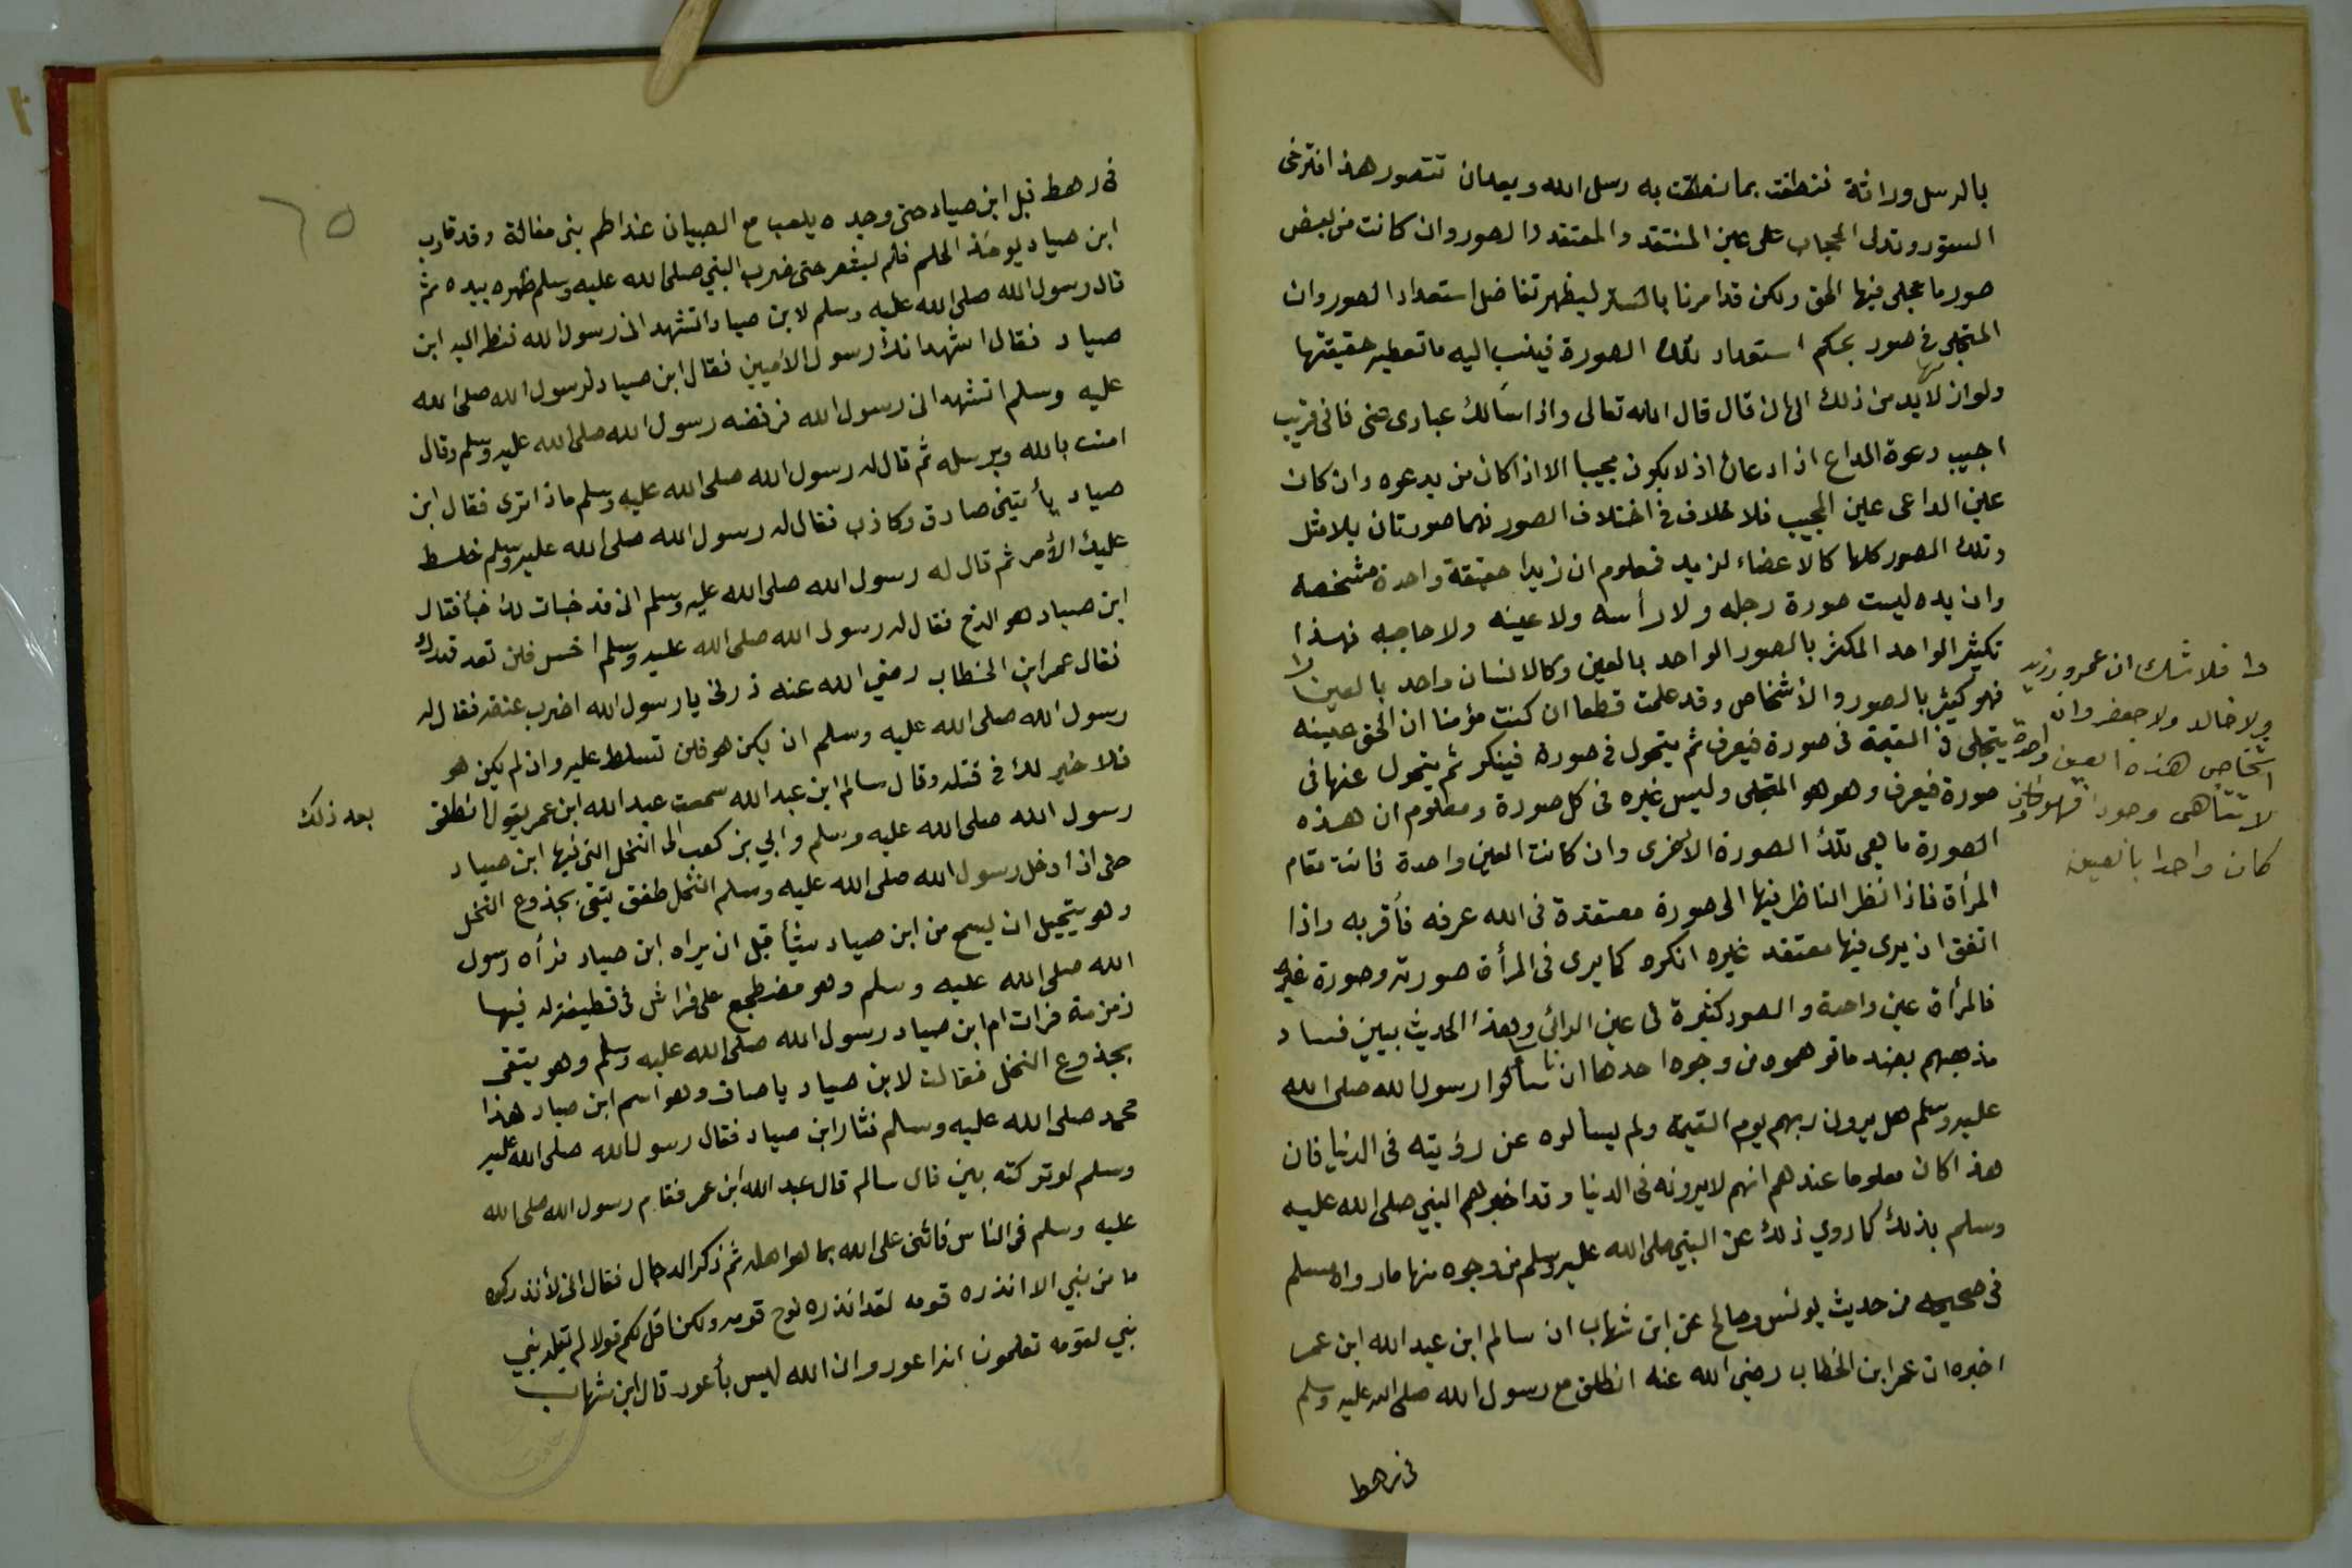 بالرسل وراثة فنطقت بما نطقت به رسل الله وبعد ان تتصور هذا فترخى
الستور وتدلى الحجاب على عين المنتقد والمعتقد والصور وان كانت من بعض
صور ما تجلى فيها الحق ولكن قد امرنا بالستر ليظهر تفاضل استعداد الصور وان
المتجلى في صور بحكم استعداد تلك الصورة فينسب اليه ما تعطيه حقيقتها
ولوازمها لا بد من ذلك الى ان قال قال الله تعالى واذا سألك عبادى عنى فانى قريب
اجيب دعوة الداع اذا دعان اذ لا يكون مجيبا الا اذا كان من يدعوه وان كان
عين الداعى عين المجيب فلا خلاف فى اختلاف الصور فهما صورتان بلا مثل
وتلك الصور كلها كالاعضاء لزيد فمعلوم ان زيدا حقيقة واحدة مشخصة
وان يده ليست صورة رجله ولا رأسه ولا عينه ولا حاجبه فهذا
تكثير الواحد المكثر بالصور الواحد بالعين وكالانسان واحد بالعين
فهو كثير بالصور والأشخاص وقد علمت قطعا ان كنت مؤمنا ان الحق عينه
يتجلى فى القيمة فى صورة فيعرف ثم يتحول فى صورة فينكر ثم يتحول عنها فى
صورة فيعرف وهو هو المتجلى وليس غيره فى كل صورة ومعلوم ان هذه
الصورة ما هى تلك الصورة الاخرى وان كانت العين واحدة قامت مقام
المرأة فاذا نظر الناظر فيها الى صورة معتقدة فى الله عرفه فأقر به واذا
اتفق ان يرى فيها معتقد غيره انكره كما يرى فى المرأة صورته وصورة غيره
فالمرأة عين واحدة والصور كثيرة فى عين الرائى وهذا الحديث يبين فساد
مذهبهم بضد ما توهموه من وجوه احدها ان ناسا سألوا رسول الله صلى الله
عليه وسلم هل يرون ربهم يوم القيمة ولم يسألوه عن رؤيته فى الدنيا فان
هذا كان معلوما عندهم انهم لا يرونه فى الدنيا وقد اخبرهم النبي صلى الله عليه
وسلم بذلك كما روي ذلك عن النبي صلى الله عليه وسلم من وجوه منها ما رواه مسلم
فى صحيحه من حديث يونس وصالح عن ابن شهاب ان سالم ابن عبد الله ابن عمر
اخبره ان عمر ابن الخطاب رضي الله عنه انطلق مع رسول الله صلى الله عليه وسلم
فى رهط
فلا شك ان عمرو زيد
ولا خالد ولا جعفر وان
اشخاص هذه العين واحدة
لا تتناهى وجودا فهو وان
كان واحدا بالعين
٦٥
فى رهط قبل ابن صياد حتى وجده يلعب مع الصبيان عند اطم بنى مغالة وقد قارب
ابن صياد يومئذ الحلم فلم يشعر حتى ضرب النبي صلى الله عليه وسلم ظهره بيده ثم
قال رسول الله صلى الله عليه وسلم لابن صياد اتشهد انى رسول الله فنظر اليه ابن
صياد فقال اشهد انك رسول الأميين فقال ابن صياد لرسول الله صلى الله
عليه وسلم اتشهد انى رسول الله فرفضه رسول الله صلى الله عليه وسلم وقال
امنت بالله وبرسله ثم قال له رسول الله صلى الله عليه وسلم ماذا ترى فقال ابن
صياد يأتينى صادق وكاذب فقال له رسول الله صلى الله عليه وسلم خلط
عليك الأمر ثم قال له رسول الله صلى الله عليه وسلم انى قد خبات لك خبأ فقال
ابن صياد هو الدخ فقال له رسول الله صلى الله عليه وسلم اخس فلن تعد قدرك
فقال عمر ابن الخطاب رضي الله عنه ذرنى يا رسول الله اضرب عنقه فقال له
رسول الله صلى الله عليه وسلم ان يكن هو فلن تسلط عليه وان لم يكن هو
فلا خير لك فى قتله وقال سالم ابن عبد الله سمعت عبد الله ابن عمر يقول انطلق
بعد ذلك
رسول الله صلى الله عليه وسلم وابي بن كعب الى النخل التى فيها ابن صياد
حتى اذا دخل رسول الله صلى الله عليه وسلم النخل طفق يتقى بجذوع النخل
وهو يتحيل ان يسمع من ابن صياد شيأ قبل ان يراه ابن صياد فرأه رسول
الله صلى الله عليه وسلم وهو مضطجع على فراش فى قطيفة له فيها
زمزمة فرات ام ابن صياد رسول الله صلى الله عليه وسلم وهو يتقى
بجذوع النخل فقالت لابن صياد يا صاف وهو اسم ابن صياد هذا
محمد صلى الله عليه وسلم فثار ابن صياد فقال رسول الله صلى الله عليه
وسلم لو تركته بين قال سالم قال عبد الله ابن عمر فقام رسول الله صلى الله
عليه وسلم فى الناس فاثنى على الله بما هو اهله ثم ذكر الدجال فقال انى لأنذركموه
ما من نبي الا انذره قومه لقد انذره نوح قومه ولكن اقل لكم قولا لم يقله نبي
نبي لقومه تعلمون انه اعور وان الله ليس بأعور قال ابن شهاب